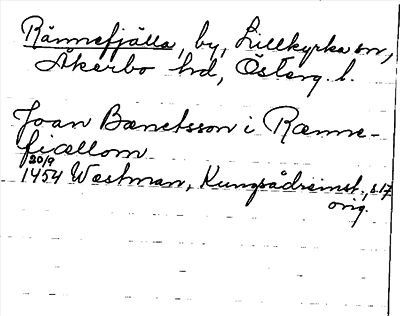 Rännefjälla, by, Lillkyrka sn,
Åkerbo hd, Österg. l.
Joan Bænctsson i Rænne-
fiællom
20/9
1454 Westman, Kungsådreinst., s. 17
orig.